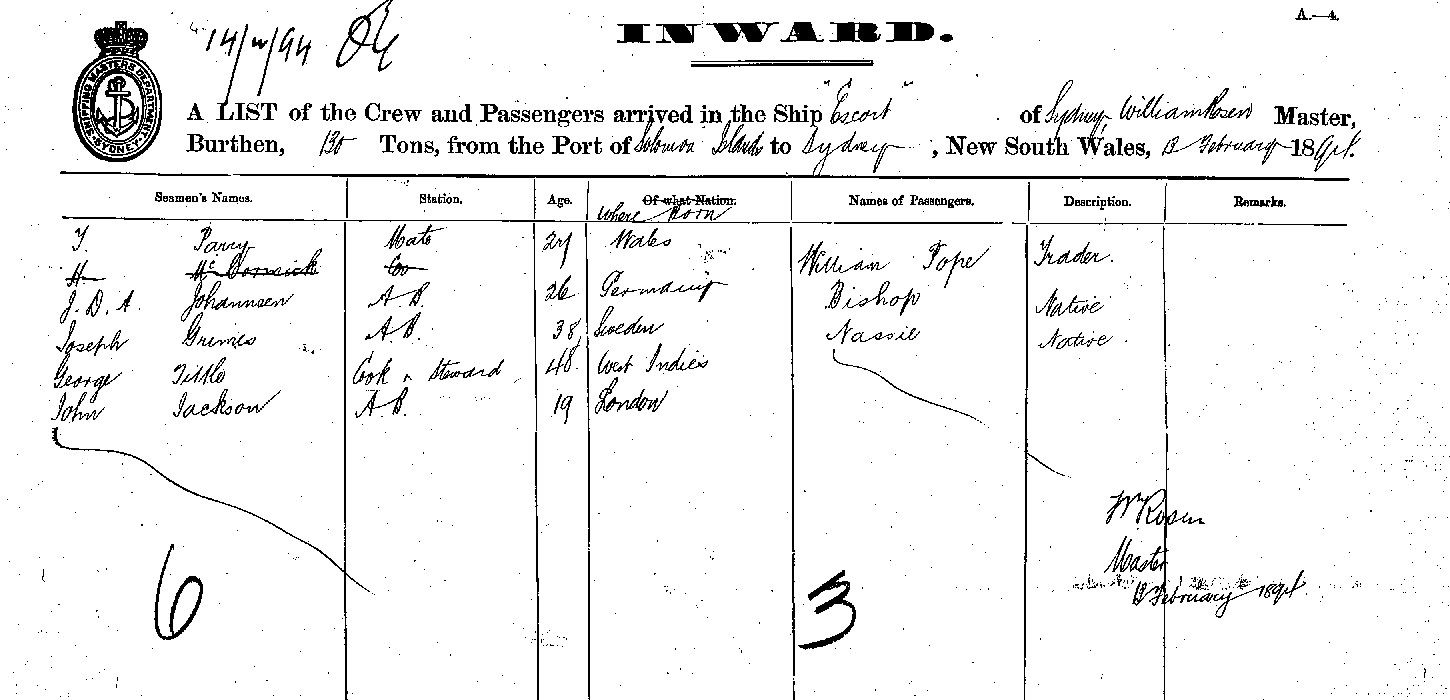 A.—4.
14/2/94
INWARD.
SHIPPING MASTERS DEPARTMENT SYDNEY
A LIST of the Crew and Passengers arrived in the Ship "Escort" of Sydney William Rosen Master,
Burthen, 130 Tons, from the Port of Solomon Islands to Sydney, New South Wales, 12 February 1894.
Seamen's Names. Station. Age. Of what Nation. Names of Passengers. Description. Remarks.
where Born
T. Parry Mate 27 Wales William Pope Trader.
H McCormick Do
J. D. A. Johannsen A B. 26 Germany Bishop Native
Joseph Grimes A B. 38 Sweden Nassie Native
George Tittle Cook & Steward 48 West Indies
John Jackson A B. 19 London
Wm Rosen
Master
12 February 1894
6 3